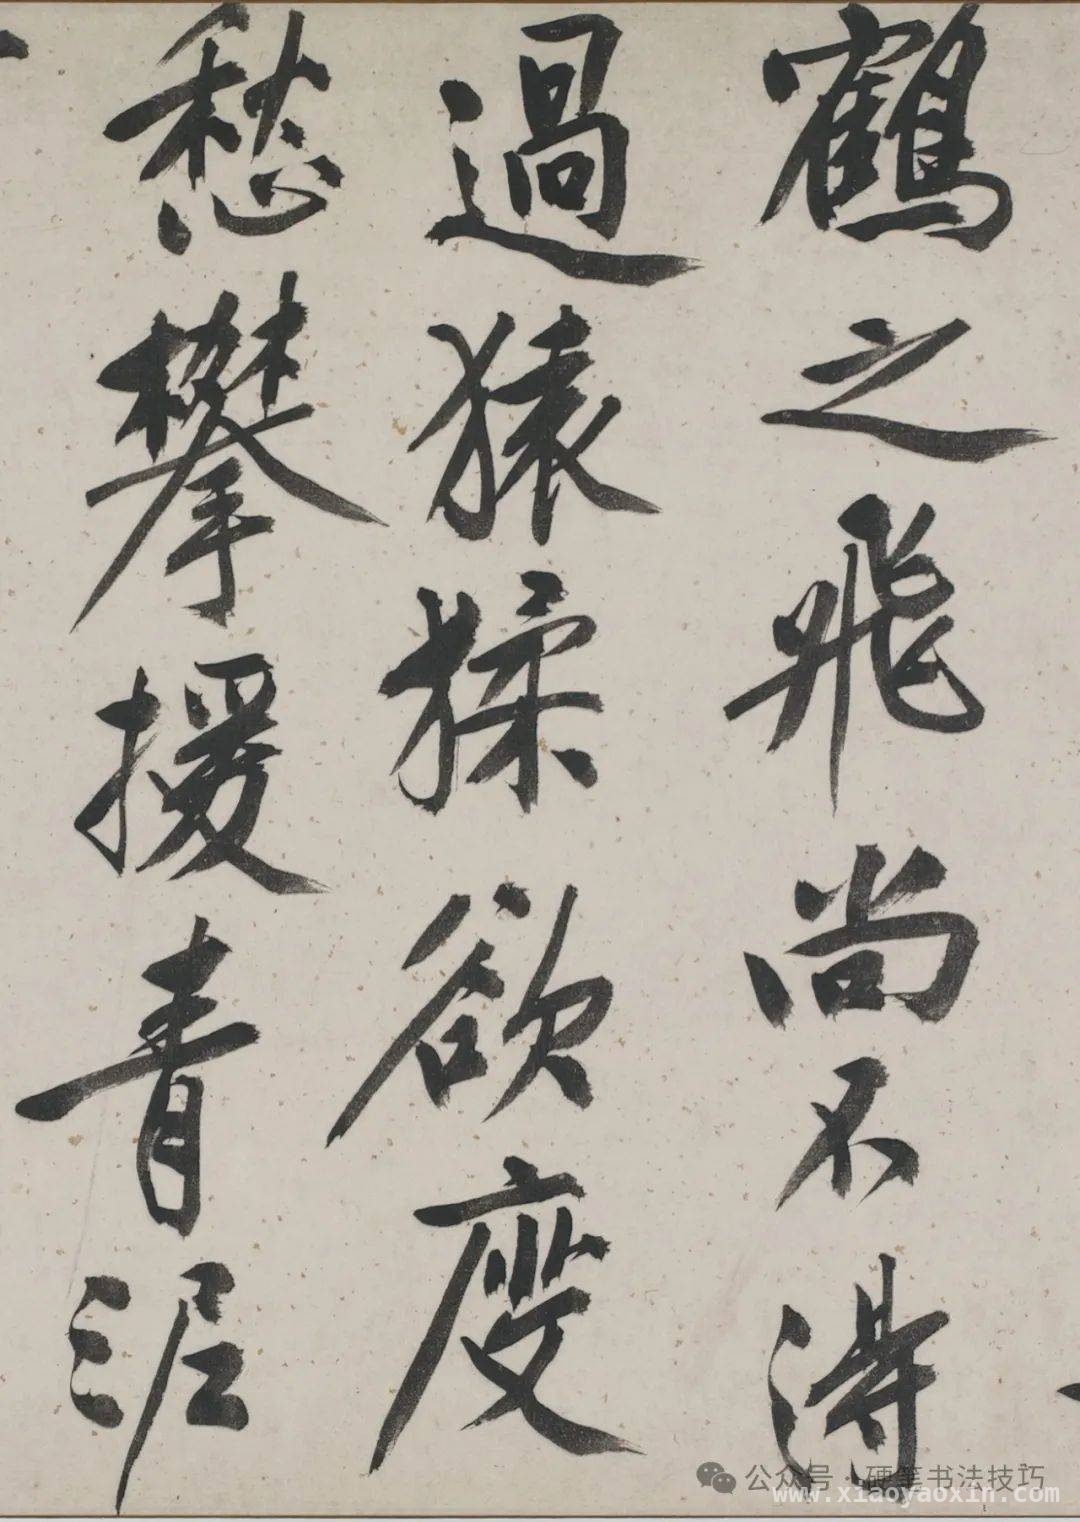 鶴之飛尚不得
過猿猱欲度
愁攀援青泥
公众号·硬笔书法技巧
www.xiaoyaoxin.com